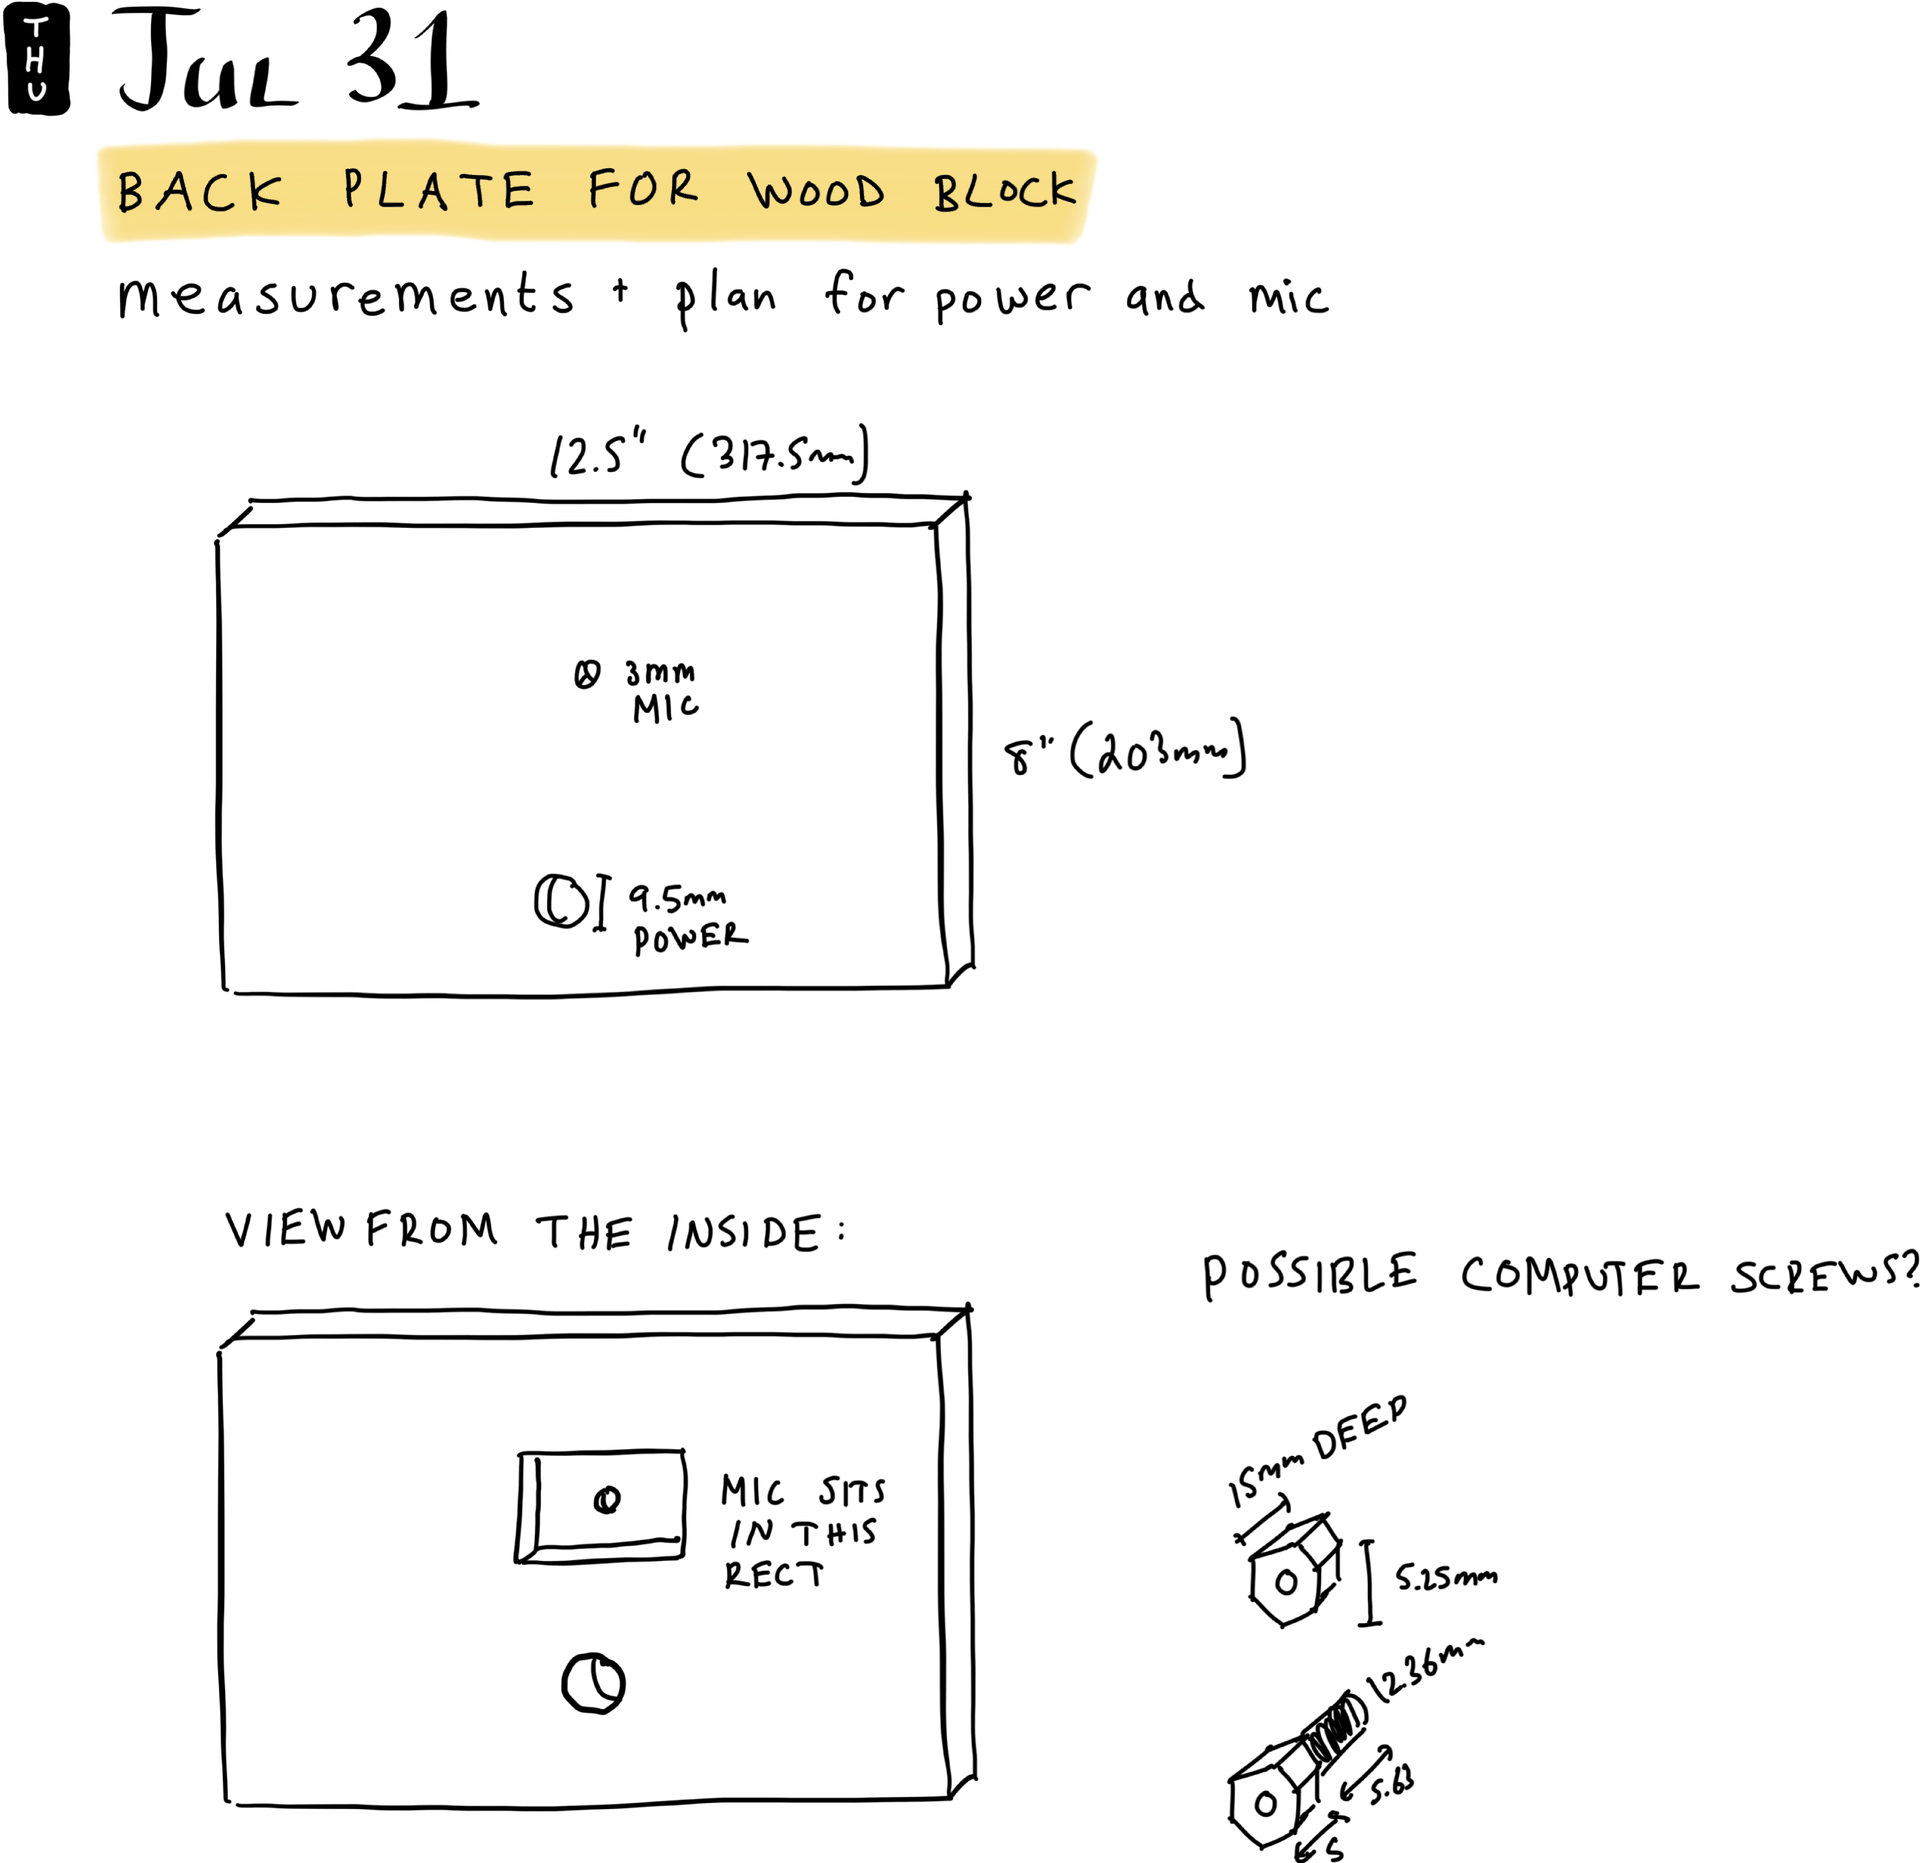 THU
JUL 31
BACK PLATE FOR WOOD BLOCK
measurements + plan for power and mic
12.5" (317.5mm)
3mm
MIC
8" (203mm)
9.5mm
POWER
VIEW FROM THE INSIDE:
POSSIBLE COMPUTER SCREWS?
15mm DEEP
MIC SITS
IN THIS
RECT
5.25mm
12.36mm
5.63
5